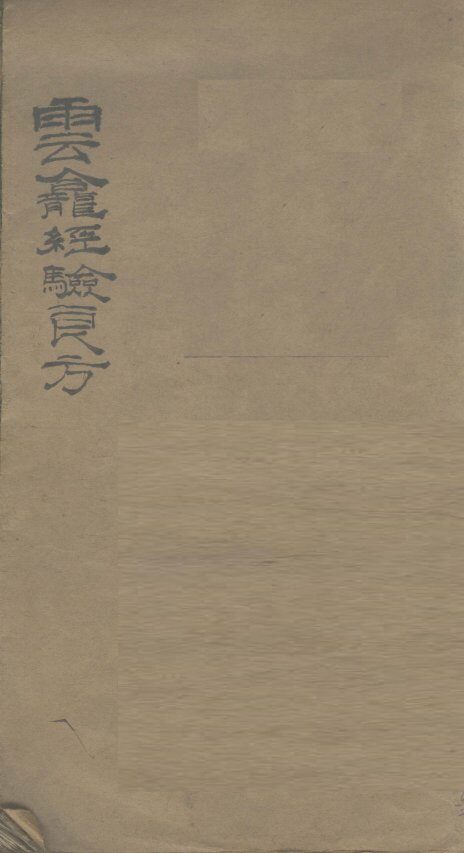 雲龕經驗良方